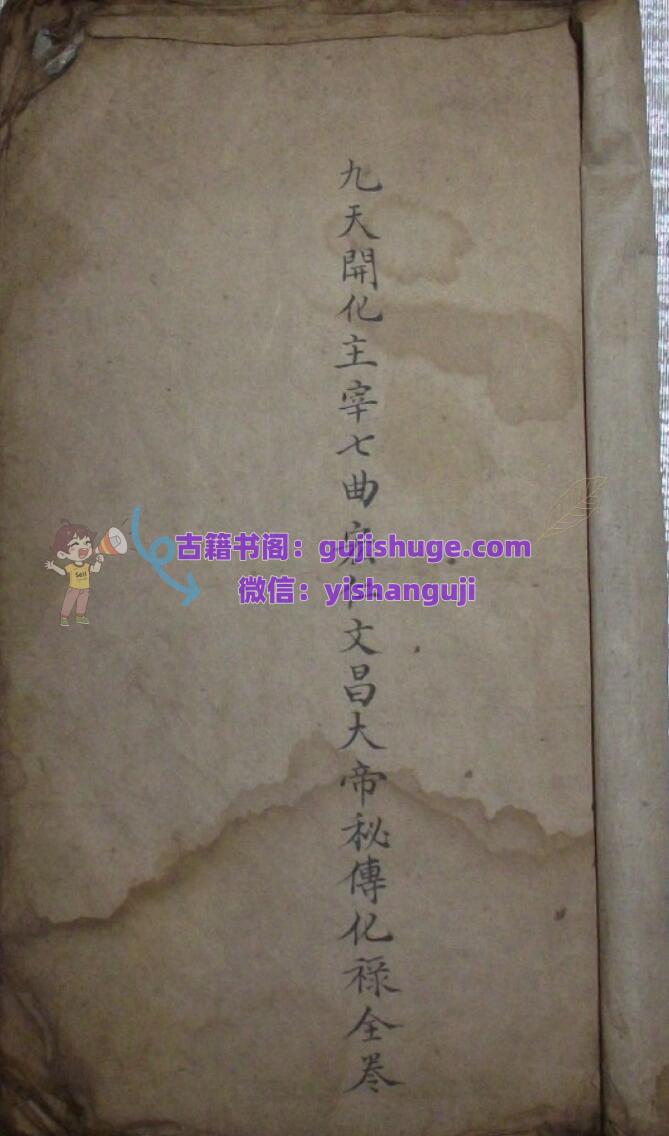 九天開化主宰七曲文昌大帝秘傳化祿全卷
古籍书阁：gujishuge.com
微信：yishanguji
Sell